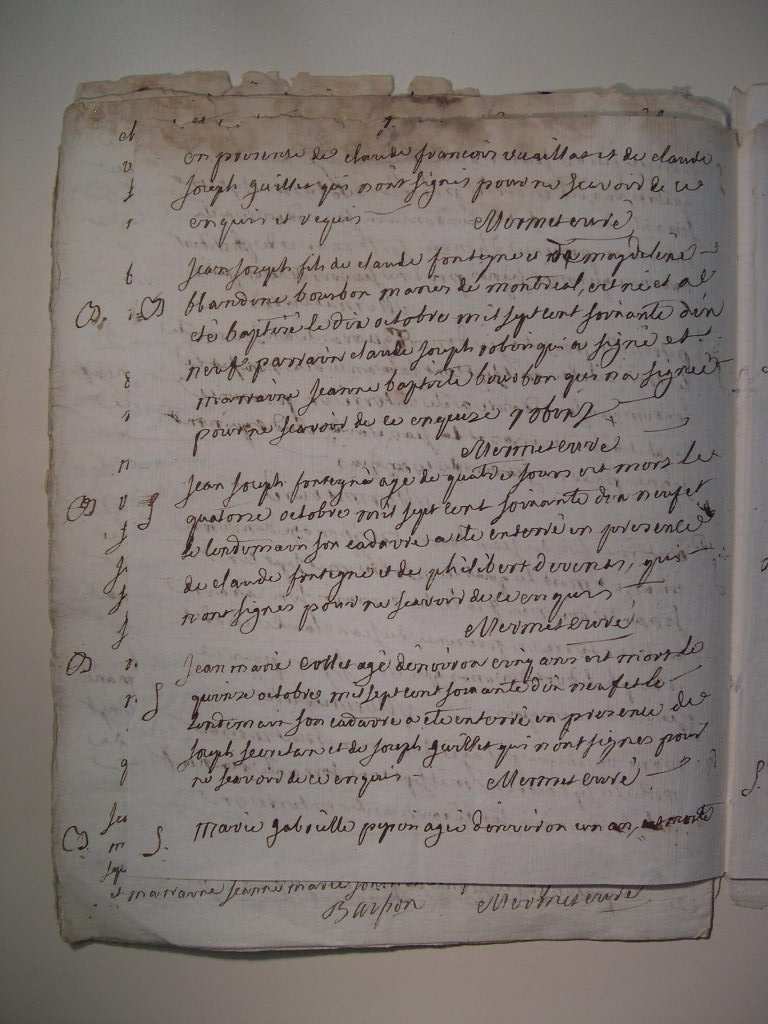 en presense de claude francois vuaillat et de claude
joseph guillet qui n'ont signés pour ne scavoir de ce
enquis et requis Mermet curé
jean joseph fils de claude fontegne et de magdelene
blandine bourbon maries de montreal, est né et a
eté baptisé le dix octobre mil sept cent soixante dix
neuf parrain claude joseph robin qui a signé et
marraine jeanne baptiste bourbon qui n'a signée
pour ne scavoir de ce enquise robin
Mermet curé
jean joseph fontegne agé de quatre jours est mort le
quatorze octobre mil sept cent soixante dix neuf et
le lendemain son cadavre a eté enterré en presence
de claude fontegne et de philibert qui
n'ont signés pour ne scavoir de ce enquis
Mermet curé
jean marie collet agé d'environ cinq ans est mort le
quinze octobre mil sept cent soixante dix neuf et le
lendemain son cadavre a eté enterré en presence de
joseph secretan et de joseph guillet qui n'ont signés pour
ne scavoir de ce enquis Mermet curé
marie gabrielle pepin agée d'environ un an, est morte
et marraine jeanne marie
Mermet curé